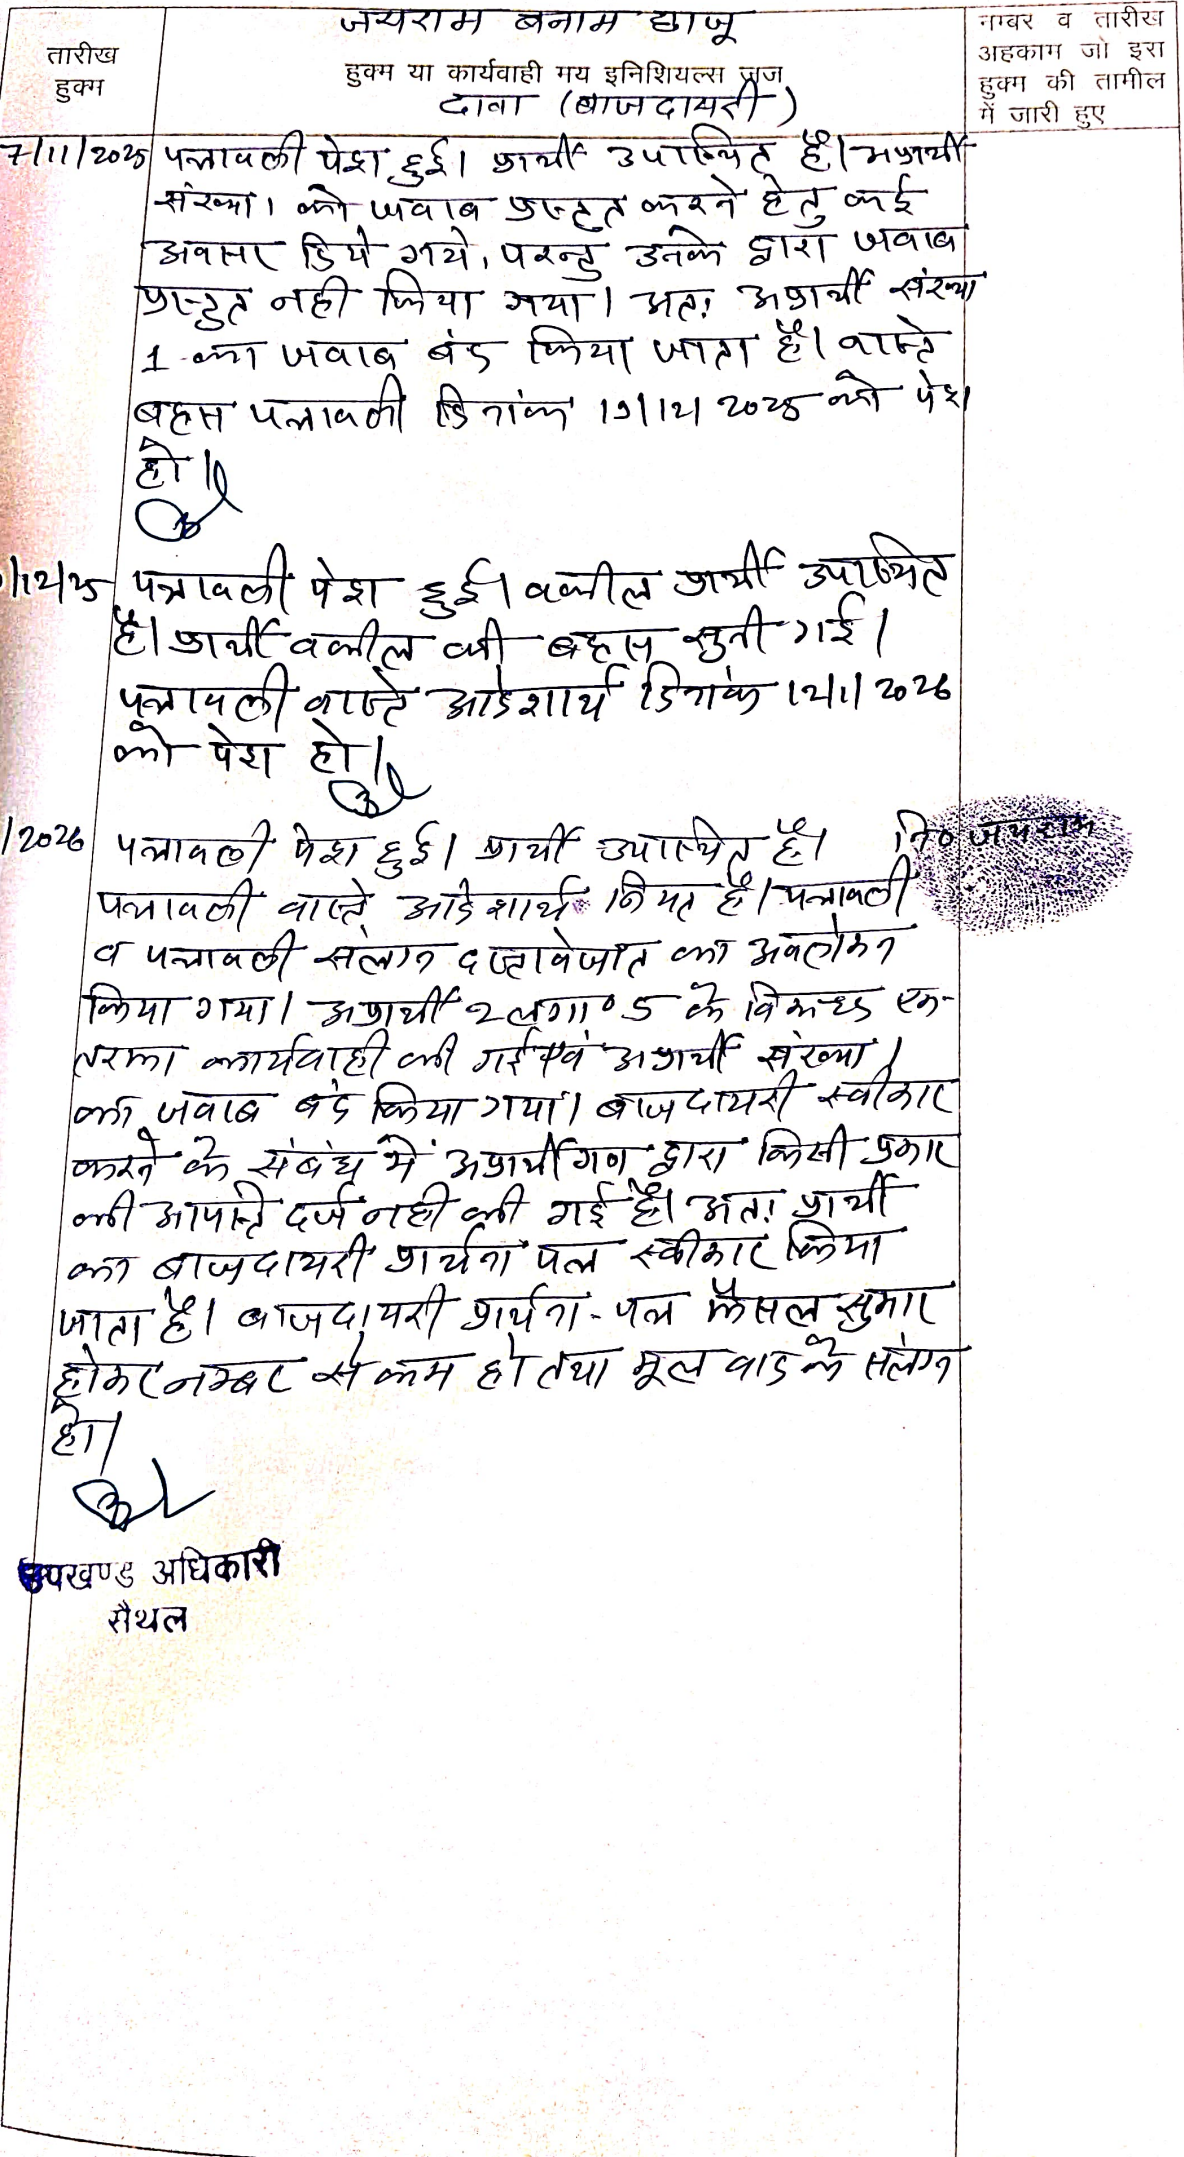 जयराम बनाम छाजू
तारीख
हुक्म
हुक्म या कार्यवाही मय इनिशियल्स जज
दावा (बाजदायरी)
नम्बर व तारीख
अहकाम जो इस
हुक्म की तामील
में जारी हुए
7/11/2025 पत्रावली पेश हुई। प्रार्थी उपस्थित है। अप्रार्थी
संख्या 1 को जवाब प्रस्तुत करने हेतु कई
अवसर दिये गये, परन्तु उनके द्वारा जवाब
प्रस्तुत नही किया गया। अतः अप्रार्थी संख्या
1 का जवाब बंद किया जाता है। वास्ते
बहस पत्रावली दिनांक 19/12/2025 को पेश
हो।
/12/25 पत्रावली पेश हुई। वकील प्रार्थी उपस्थित
है। प्रार्थी वकील की बहस सुनी गई।
पत्रावली वास्ते आदेशार्थ दिनांक 12/1/2026
को पेश हो।
/2026 पत्रावली पेश हुई। प्रार्थी उपस्थित है।
नि० जयराम
पत्रावली वास्ते आदेशार्थ नियत है। पत्रावली
व पत्रावली संलग्न दस्तावेजात का अवलोकन
किया गया। अप्रार्थी 2 लगा० 5 के विरूद्ध एक-
तरफा कार्यवाही की गई एवं अप्रार्थी संख्या 1
का जवाब बंद किया गया। बाजदायरी स्वीकार
करने के संबंध में अप्रार्थीगण द्वारा किसी प्रकार
की आपत्ति दर्ज नही की गई है। अतः प्रार्थी
का बाजदायरी प्रार्थना पत्र स्वीकार किया
जाता है। बाजदायरी प्रार्थना-पत्र फैसल सुमार
होकर नम्बर से कम हो तथा मूल वाद के संलग्न
हो।
उपखण्ड अधिकारी
सैंथल